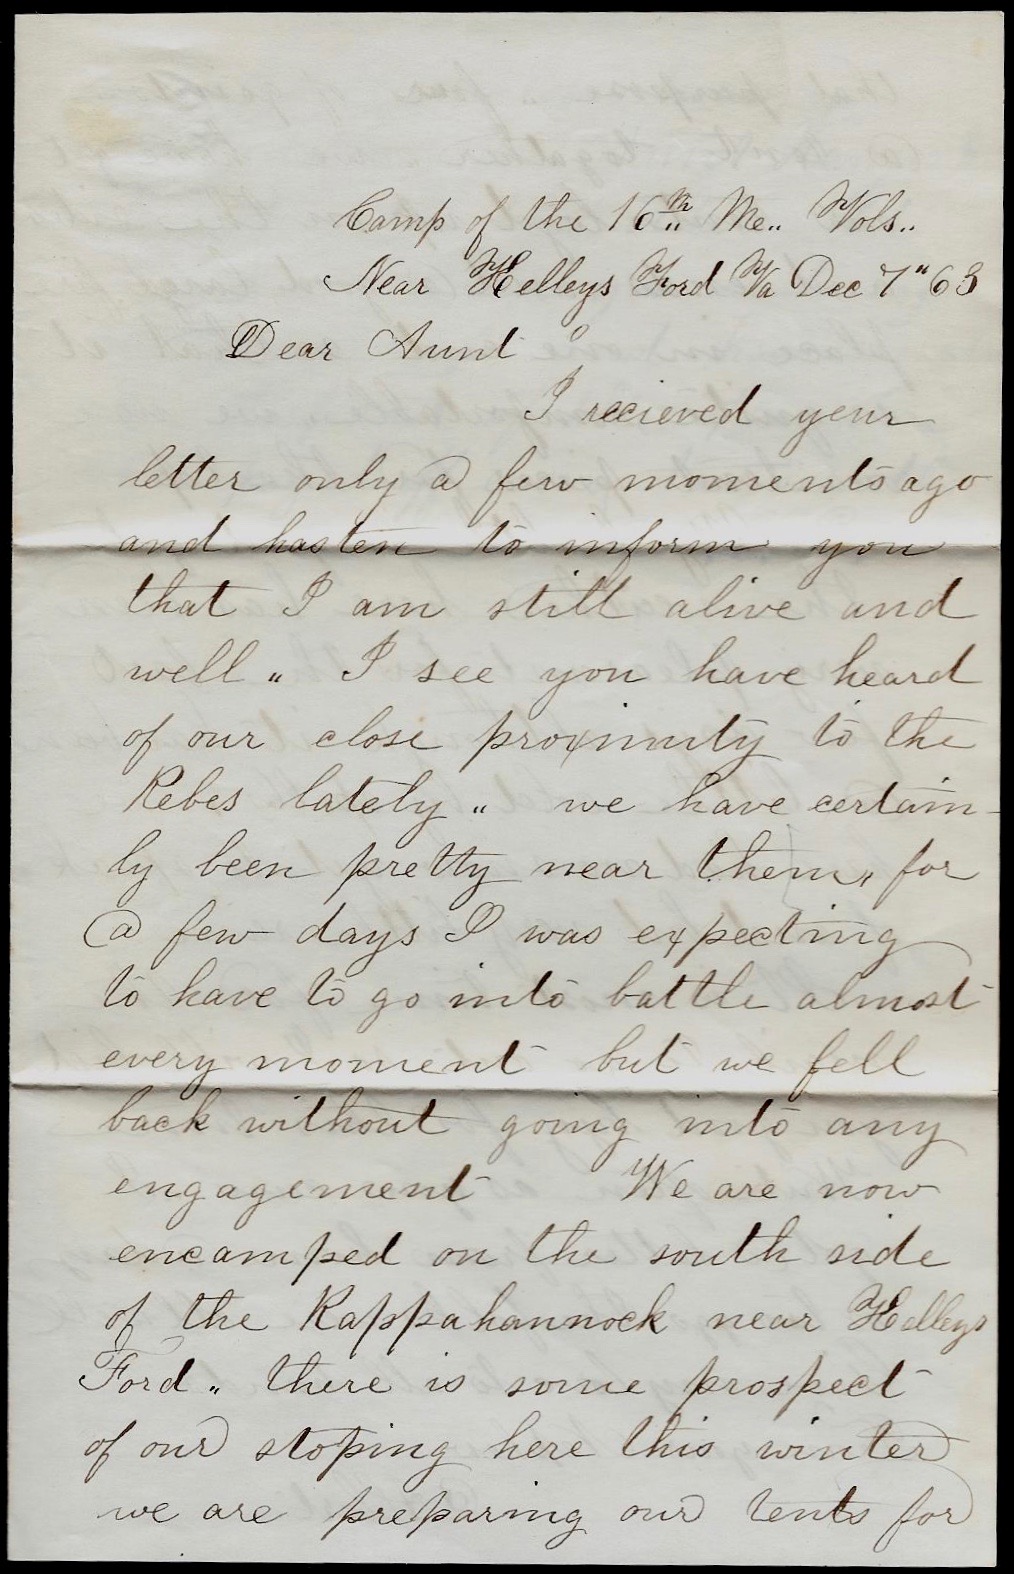 Camp of the 16th Me.. Vols..
Near Kelleys Ford Va Dec 7" 63
Dear Aunt
I recieved your
letter only a few moments ago
and hasten to inform you
that I am still alive and
well " I see you have heard
of our close proximity to the
Rebes lately " we have certain-
ly been pretty near them " for
a few days I was expecting
to have to go into battle almost
every moment but we fell
back without going into any
engagement We are now
encamped on the south side
of the Rappahannock near Kelleys
Ford " there is some prospect
of our stoping here this winter
we are preparing our tents for